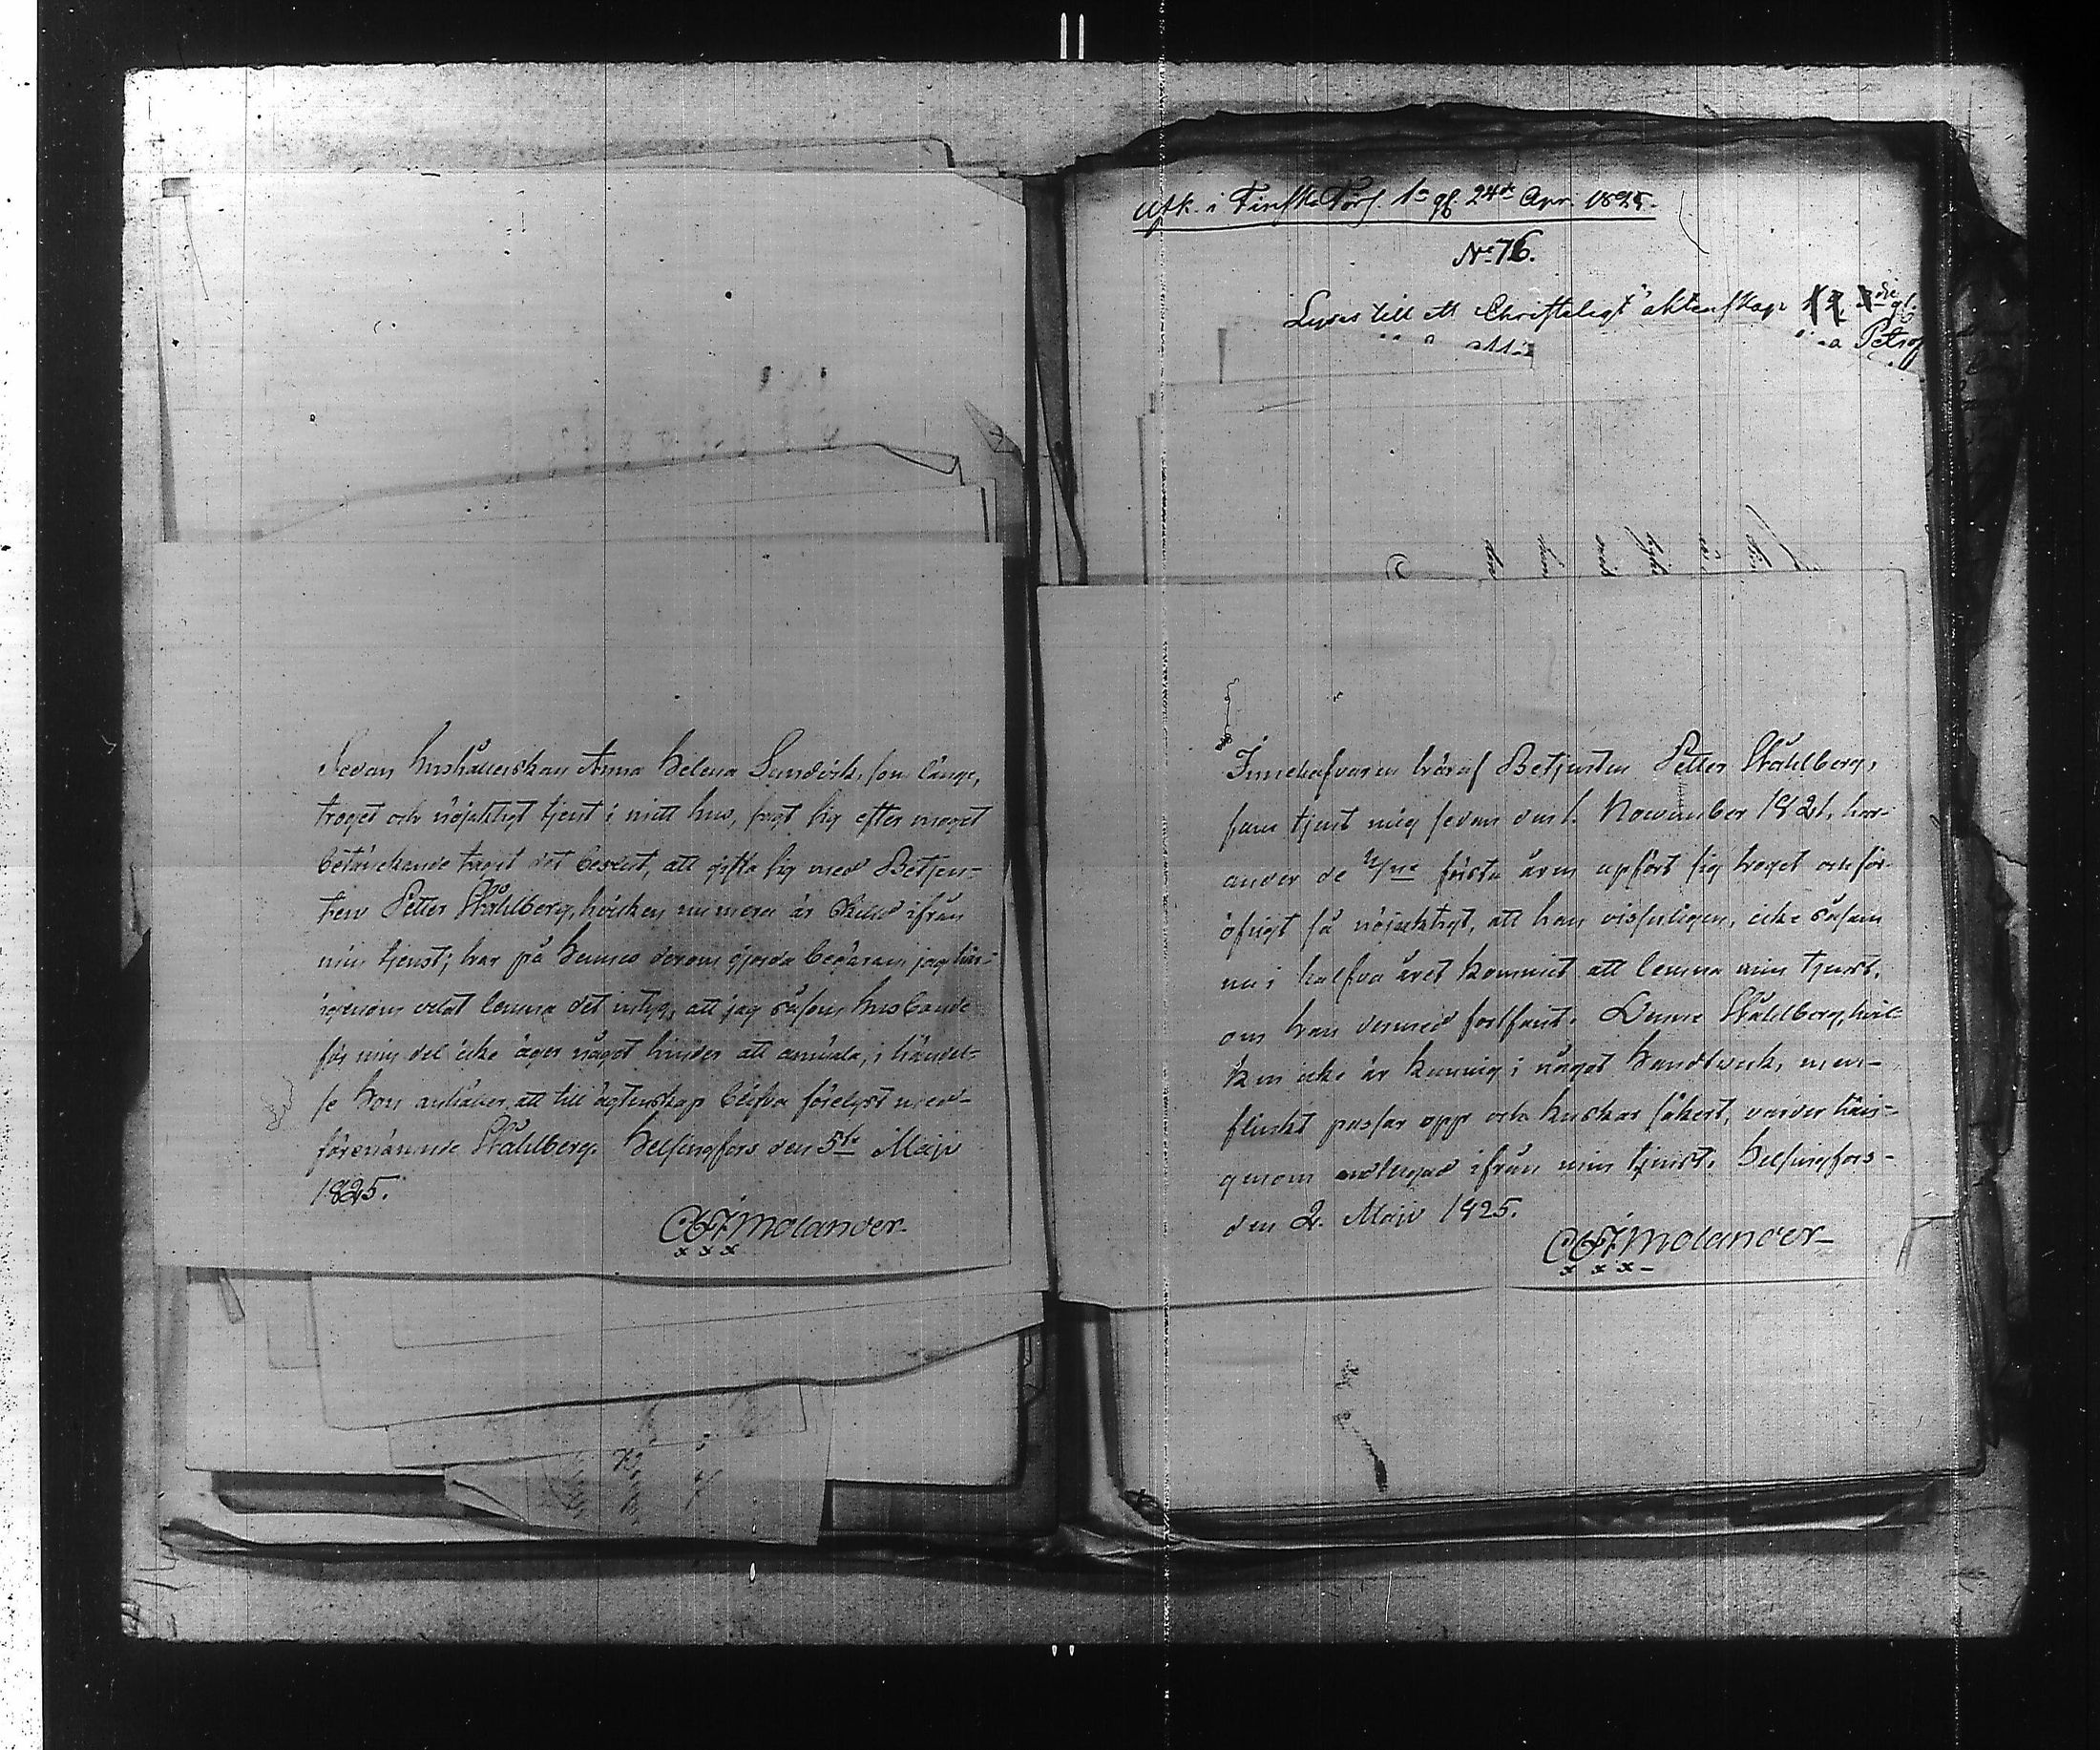 Sedan hushållerskan Anna Helena Sundvik, som länge,
troget och nöjaktigt tjent i mitt hus, sagt sig efter moget
betänckande taget det beslut, att gifta sig med Betjen-
ten Petter Ståhlberg, hvilken numera är skild ifrån
min tjenst; har på hennes derom gjorda begäran jag här-
igenom velat lemna det intyg, att jag såsom husbonde
för min del icke äger något hinder att anmäla, i händel-
se hon anhåller, att till ägtenskap blifva förelyst med
förenämnde Ståhlberg. Helsingfors den 5te Maji
1825.
Molander
Utk. i Finska Förs. 1a gg. 24de Apr. 1825.
No 76.
Lyses till ett Christeligt äktenskap
Petrof
Innehafvaren häraf Betjenten Petter Ståhlberg,
som tjent mig sedan den 1. November 1821, har
under de första åren upfört sig troget och för
öfrigt så nöjaktigt, att han visserligen, icke såsom
nu i halfva året kommit att lemna min tjenst,
om han dermed fortfarit. Denne Ståhlberg, hvil-
ken icke är kunnig i något handtverk, men
flinkt passar opp och kuskar säkert, varder här-
genom endtledgad ifrån min tjenst. Helsingfors
den 2. Maji 1825.
Molander